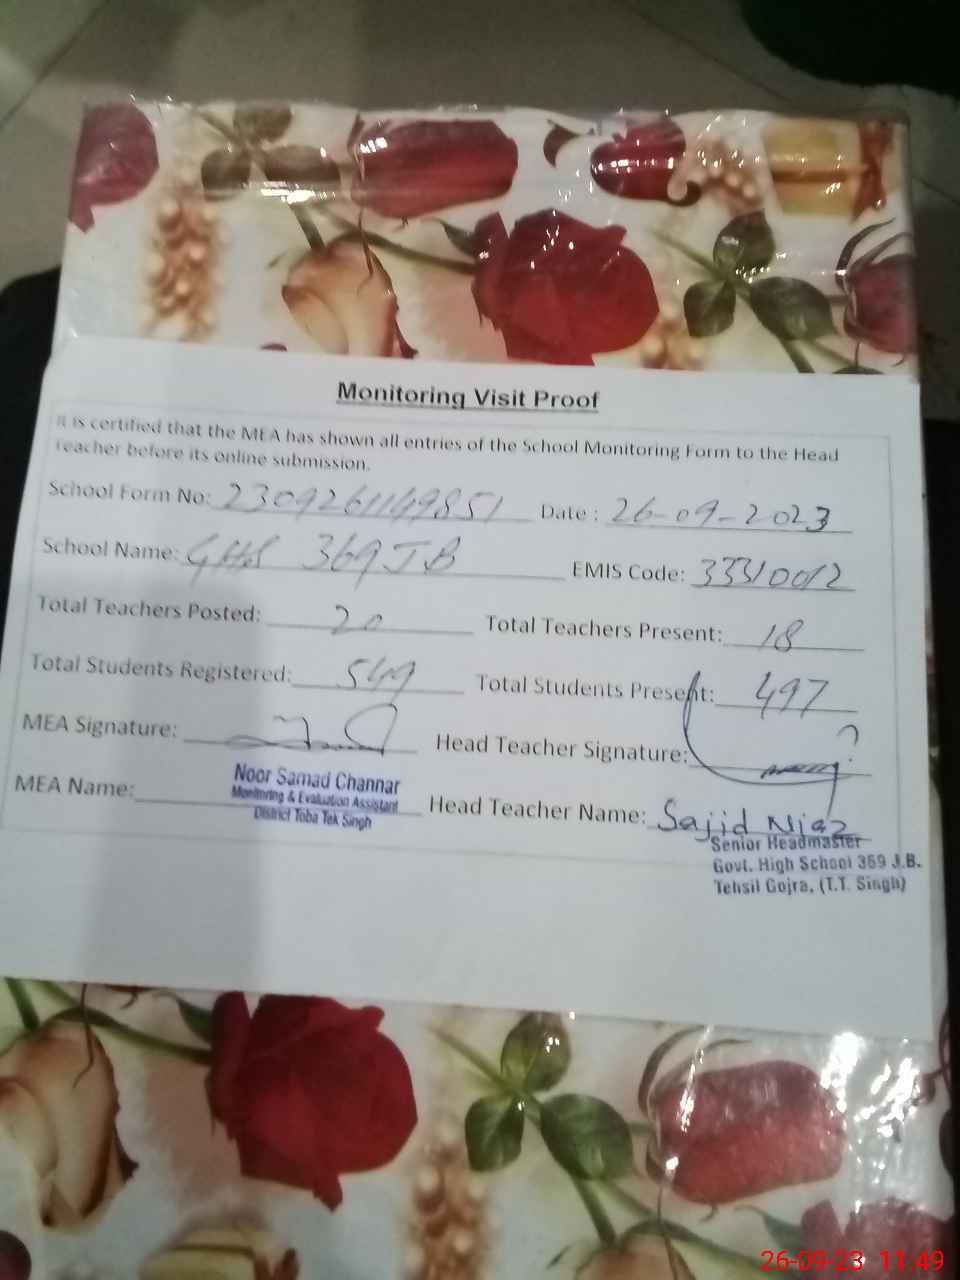 Monitoring Visit Proof
It is certified that the MEA has shown all entries of the School Monitoring Form to the Head
Teacher before its online submission.
School Form No: 2309261149851 Date : 26-09-2023
School Name: GHS 369 JB EMIS Code: 33310012
Total Teachers Posted: 20 Total Teachers Present: 18
Total Students Registered: 549 Total Students Present: 497
MEA Signature: Head Teacher Signature:
MEA Name: Noor Samad Channar Head Teacher Name: Sajid Niaz
Monitoring & Evaluation Assistant
District Toba Tek Singh
Senior Headmaster
Govt. High School 369 J.B.
Tehsil Gojra, (T.T. Singh)
26-09-23 11:49